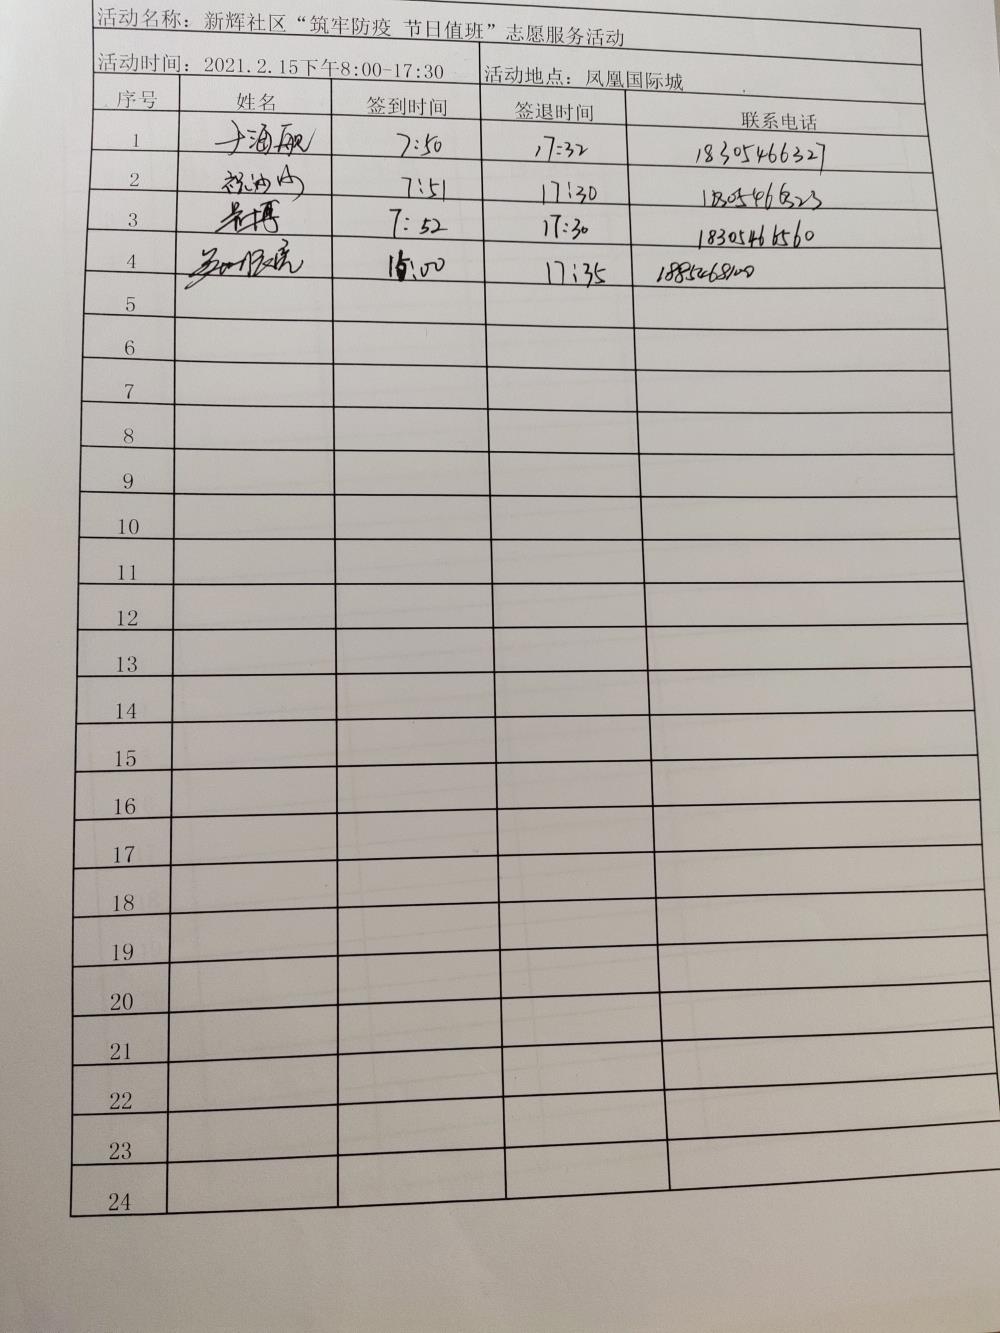 活动名称：新辉社区“筑牢防疫 节日值班”志愿服务活动
活动时间：2021.2.15下午8:00-17:30 活动地点：凤凰国际城
序号 姓名 签到时间 签退时间 联系电话
1 7:50 17:32 18305466327
2 7:51 17:30
3 7:52 17:30 18305466560
4 :00 17:35
5
6
7
8
9
10
11
12
13
14
15
16
17
18
19
20
21
22
23
24